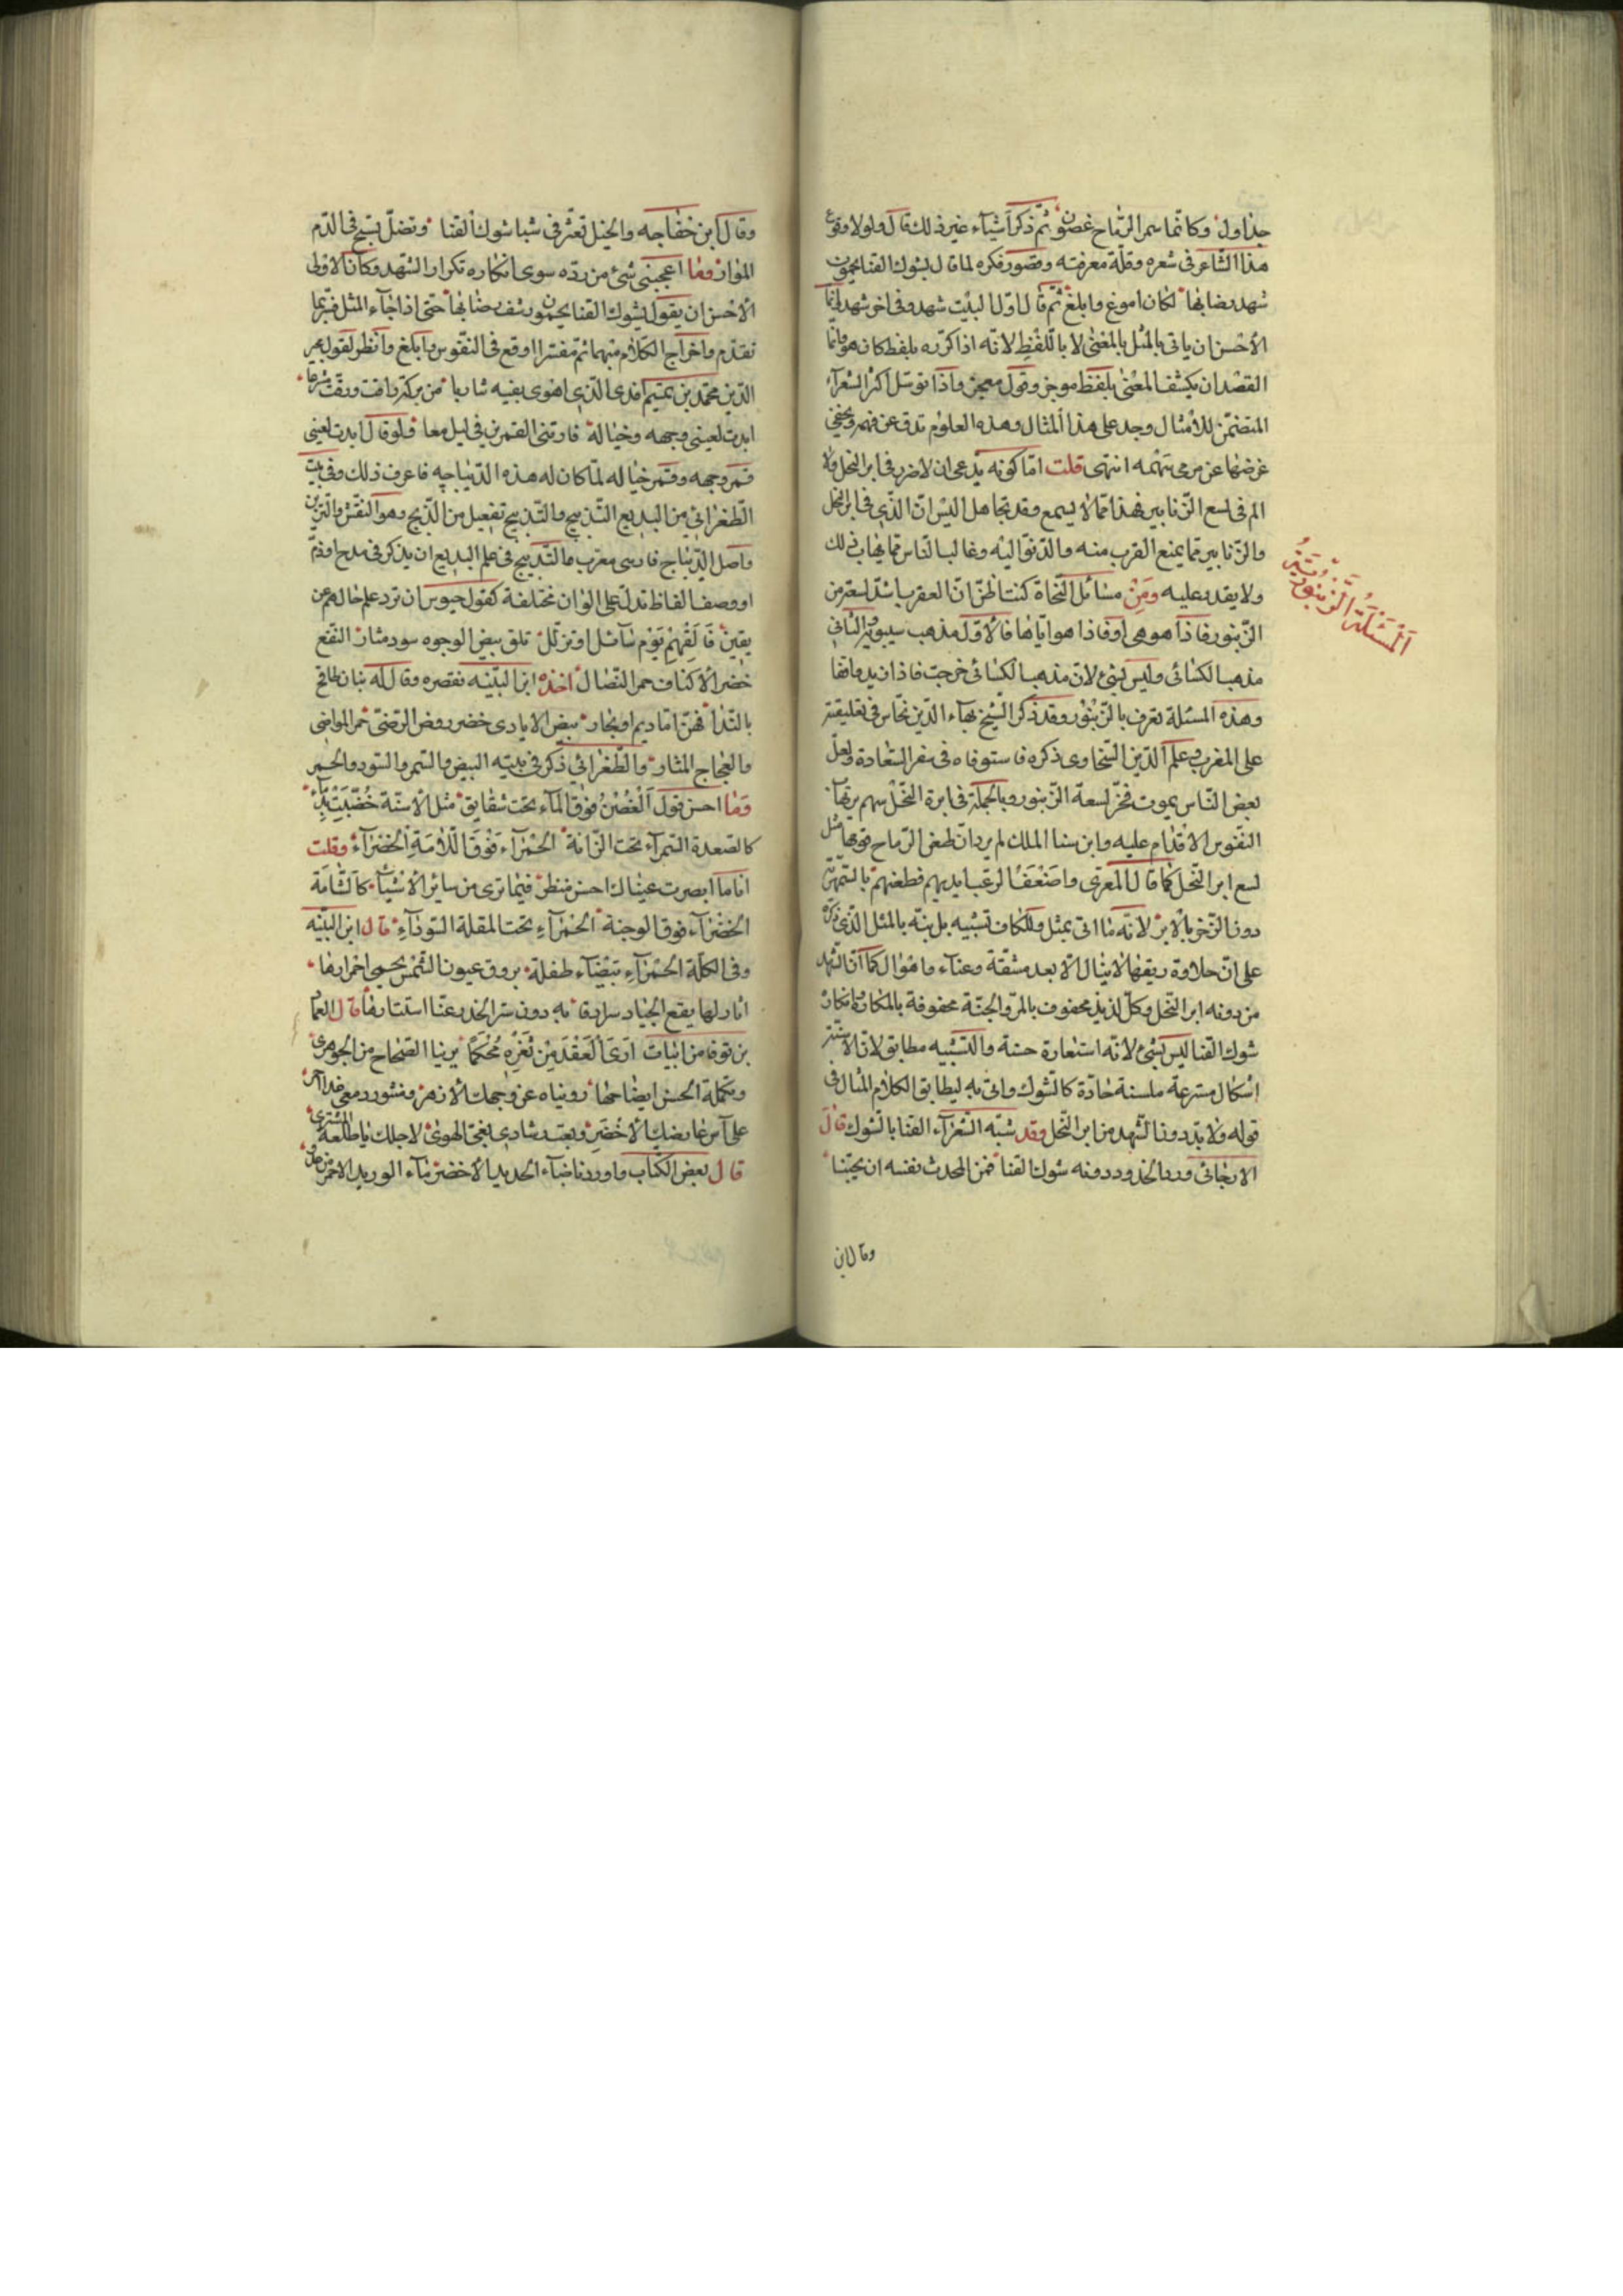 جداول وكانما سمر الرماح غصون ثم ذكر اشياء غير ذلك قال ولولا وقوع
هذا الشاعر فى شعره وقلة معرفته وقصور فكره لما قال بشوك القنا يحمون
شهد رضابها لكان اصوغ وابلغ ثم قال اولا لبيت شهد وفى اخر شهد وانما
الأحسن ان ياتى بالمثل بالمعنى لا باللفظ لانه اذا كرره بلفظ كان هو وانما
القصد ان يكشف المعنى بلفظ موجز وقول معجز واذا توسل اكثر الشعراء
المتضمن للأمثال وجد على هذا المثال وهذه العلوم تدق عن فهمه ويخفى
غرضها عن مرمى سهمه انتهى قلت اما كونه يدعى ان لا ضرر فى ابر النحل ولا
الم فى لسع الزنابير فهذا مما لا يسمع وقد تجاهل اليس ان الذى فى ابر النحل
والزنابير مما يمنع القرب منه والدنو اليه وغالب الناس مما يهاب ذلك
ولا يقدم عليه ومن مسائل النحاة كنت اظن ان العقرب اشد لسعة من
الزنبور فاذا هو هى او فاذا هو اياها فالاول مذهب سيبويه والثانى
مذهب الكسائى وليس بشئ لان مذهب الكسائى خرجت فاذا زيد واقفا
وهذه المسئلة تعرف بالزنبور وقد ذكر الشيخ بهاء الدين نحاس فى تعليقته
على المقرب وعلم الدين السخاوى ذكره فاستوفاه فى سفر السعادة ولعل
بعض الناس يموت من لسعة الزنبور وبالجملة فى ابرة النحل سهم يرتهاب
النفوس الاقدام عليه وابن سنا الملك لم يرد ان طعن الرماح فوقها مثل
لسع ابر النحل كما قال المعرى واضعف الرعب ايديهم فطعنهم بالسمهرية
دون الوخز بالابر لانه ما اتى بمثل وللكاف تشبيه بل نبه بالمثل الذى ذكره
على ان حلاوة ريقها لا ينال الا بعد مشقة وعناء واهوال كما ان الشهد
من دونه ابر النحل وكل لذيذ محفوف بالمر والجنة محفوفة بالمكاره وانكاره
شوك القنا ليس بشئ لانه استعارة حسنة والتشبيه مطابق لان الاسنة
اشكال مسترعة ملسنة حادة كالشوك واتى به ليطابق الكلام المثال فى
قوله ولا بد دون الشهد من ابر النحل وقد شبه الشعراء القنا بالشوك قال
الارجانى ورد الخدود ودونه شوك القنا فمن المحدث نفسه ان يجتنا
وقال ابن
المسئلة الزنبورية
وقال ابن خفاجه والخيل تعثر فى شبا شوك القنا وتضل تسبح فى الدم
الموار وما اعجبنى شئ من رده سوى انكاره تكرار الشهد وكان الاولى
الأحسن ان يقول بشوك القنا يحمون رشف رضابها حتى اذا جاء المثل فيما
تقدم واخراج الكلام مبهما ثم مفسرا اوقع فى النفوس وابلغ وانظر لقول مجير
الدين محمد بن تميم افدى الذى اهوى بفيه شاربا من بركة راقت ورقت مشرعا
ابدت لعينى وجهه وخياله فارتنى القمرين فى ليل معا ولو قال ابدت لعينى
قمر وجهه وقمر خياله لما كان له هذه الديباجه فاعرف ذلك وفى بيت
الطغرائى من البديع التدبيج والتدبيج تفعيل من الدبج وهو النقش والتزيين
واصل الديباج فارسى معرب والتدبيج فى علم البديع ان يذكر فى مدح او ذم
او وصف الفاظ تدل على الوان مختلفة كقول حيوس ان ترد علم حالهم عن
يقين فالقهم يوم نائل او نزال تلق بيض الوجوه سود مثار النقع
خضر الأكناف حمر النضال اخذه ابن النبيه فقصره وقال له بنان طافح
بالندا فهن اما ديم او بحار بيض الايادى خضر روض الرضى حمر المواضى
والعجاج المثار والطغرائى ذكر فى بيته البيض والسمر والسود والحمر
وما احسن قول الغصن فوق الماء تحت شقايق مثل الأسنة خضبت بدماء
كالصعدة السمراء تحت الراية الحمراء فوق اللأمة الخضراء وقلت
انا ما ابصرت عيناك احسن منظر فيما ترى من سائر الأشياء كالشامة
الخضراء فوق الوجنة الحمراء تحت المقلة السوداء قال ابن النبيه
وفى الكلة الحمراء بيضاء طفلة بروق عيون الشمس يحسى احمرارها
اثار لها يقع الجياد سرادقا به دون ستر الخدر عنا استتارها قال العماد
بن نوفا من ابيات ارى العقد من ثغره محكما يرينا الصحاح من الجوهرى
وتكملة الحسن ايضاحها رويناه عن وجهك الأزهر ومنثور دمعى غدا احمر
على آس عارضك الأخضر وبعت رشادى بغى الهوى لاجلك يا طلعة المشترى
قال بعض الكتاب واوردنا ضباء الحديد الأخضر ماء الوريد الاحمر من